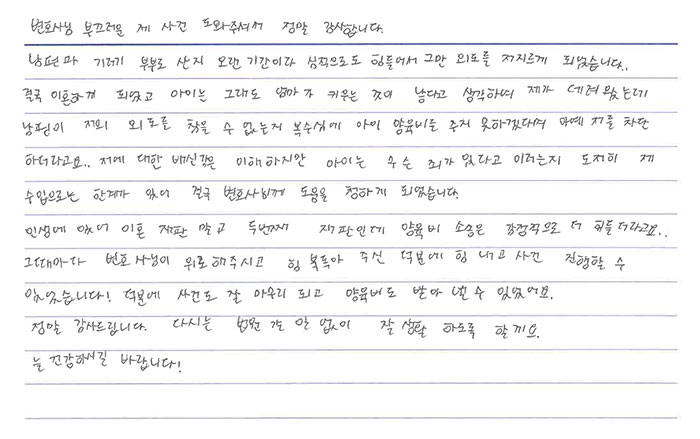 변호사님 부끄러울 제 사건 도와주셔서 정말 감사합니다.
남편과 기러기 부부로 산지 오랜 기간이라 심적으로도 힘들어서 그만 외도를 저지르게 되었습니다.
결국 이혼하게 되었고 아이는 그래도 엄마가 키우는 것이 낫다고 생각하여 제가 데려왔는데
남편이 저의 외도를 참을 수 없는지 복수심에 아이 양육비를 주지 못하겠다며 아예 저를 차단
하더라고요.. 저에 대한 배신감은 이해하지만 아이는 무슨 죄가 있다고 이러는지 도저히 제
수입으로는 한계가 있어 결국 변호사님께 도움을 청하게 되었습니다.
인생에 있어 이혼 재판 말고 두번째 재판인데 양육비 소송은 감정적으로 더 힘들더라고요..
그때마다 변호사님이 위로해주시고 힘 북돋아 주신 덕분에 힘 내고 사건 진행할 수
있었습니다! 덕분에 사건도 잘 마무리 되고 양육비도 받아 낼 수 있었어요.
정말 감사드립니다. 다시는 법원 갈 일 없이 잘 생활 하도록 할게요.
늘 건강하시길 바랍니다!